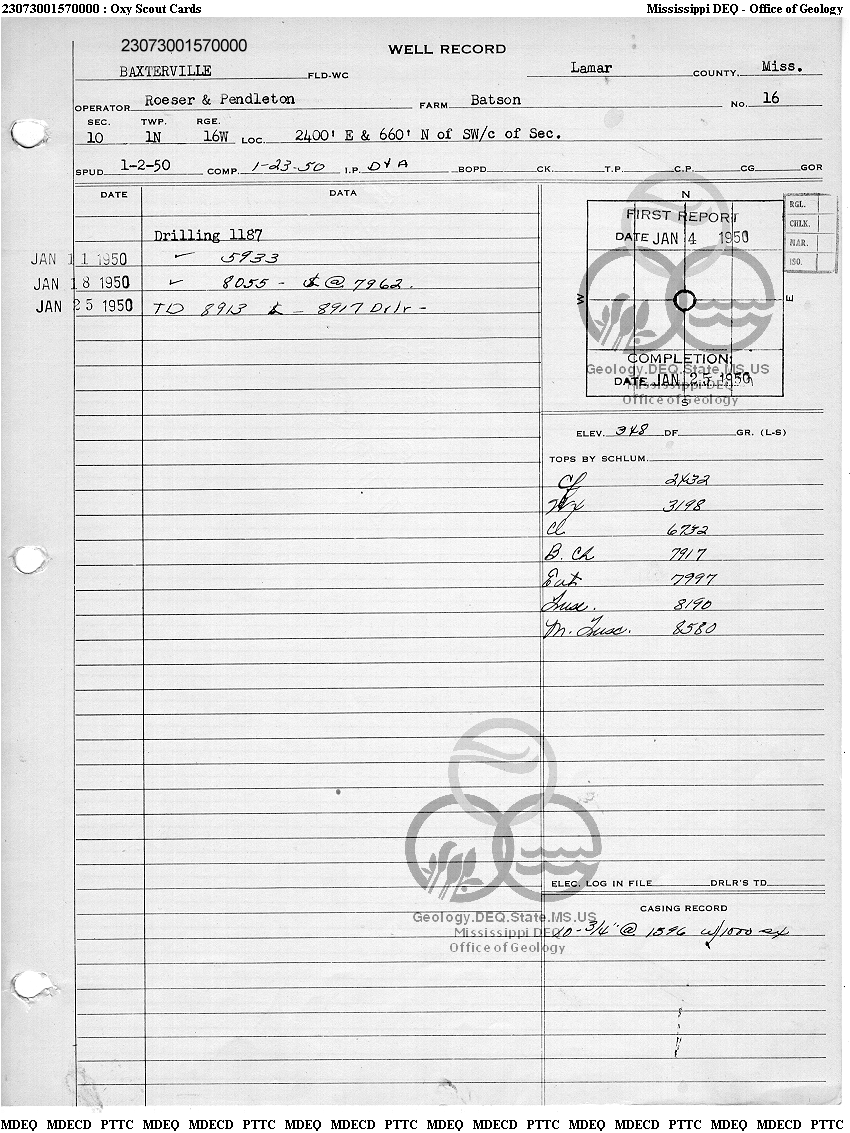 23073001570000 : Oxy Scout Cards Mississippi DEQ - Office of Geology
23073001570000
WELL RECORD
BAXTERVILLE FLD-WC Lamar COUNTY, Miss.
OPERATOR Roeser & Pendleton FARM Batson No. 16
SEC. TWP. RGE.
10 1N 16W LOC. 2400' E & 660' N of SW/c of Sec.
SPUD 1-2-50 COMP. 1-23-50 I.P. D&A BOPD CK. T.P. C.P. CG. GOR
DATE DATA
Drilling 1187
JAN 11 1950 5933
JAN 18 1950 8055 - @ 7962.
JAN 25 1950 TD 8913 - 8917 Drlr -
N
W
E
S
FIRST REPORT
DATE JAN 4 1950
COMPLETION
DATE JAN 25 1950
RGL.
CHLK.
MAR.
ISO.
Geology.DEQ.State.MS.US
Mississippi DEQ
Office of Geology
ELEV. 348 DF GR. (L-S)
TOPS BY SCHLUM.
2432
Wx 3198
Cl 6732
B. Ch 7917
Eut 7997
Tusc. 8190
M. Tusc. 8580
Geology.DEQ.State.MS.US
Mississippi DEQ
Office of Geology
ELEC. LOG IN FILE DRLR'S TD
CASING RECORD
10-3/4" @ 1596 w/1000 sx
MDEQ MDECD PTTC MDEQ MDECD PTTC MDEQ MDECD PTTC MDEQ MDECD PTTC MDEQ MDECD PTTC MDEQ MDECD PTTC